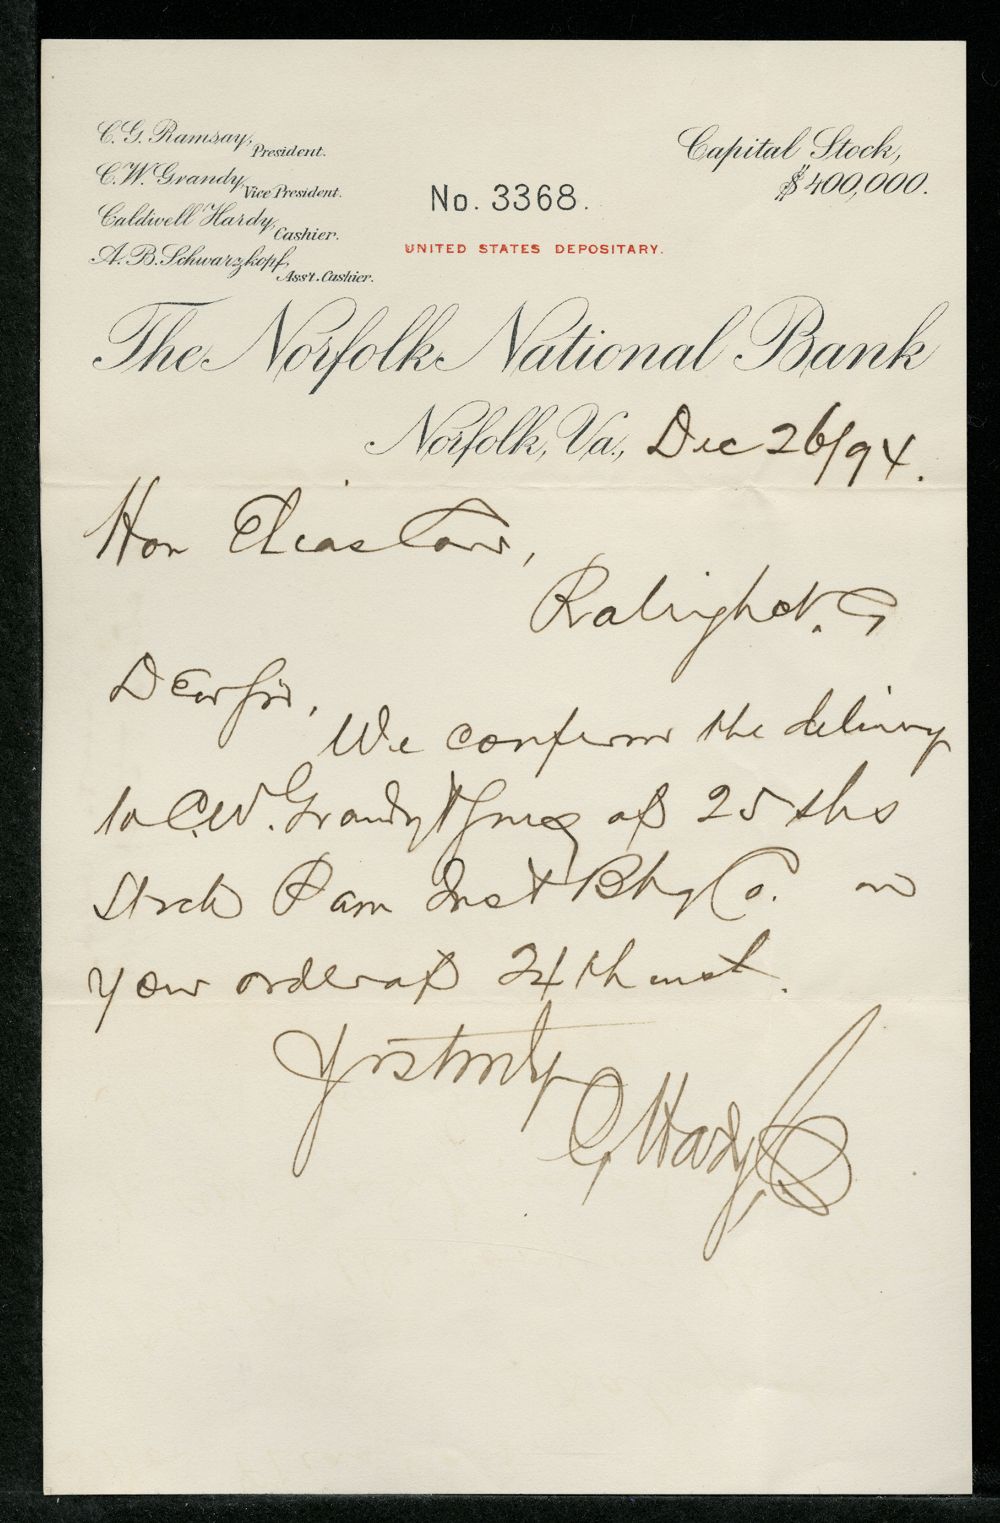 C. G. Ramsay, President.
C. W. Grandy, Vice President.
Caldwell Hardy, Cashier.
A. B. Schwarzkopf, Ass't. Cashier.
No. 3368.
UNITED STATES DEPOSITARY.
Capital Stock,
$400,000.
The Norfolk National Bank
Norfolk, Va., Dec 26/94.
Hon Elias Carr,
Raleigh N. C
Dear Sir,
We confirm the delivery
to C.W. Grandy & Sons of 25 shs
Stock Pam Inst Bkg Co. on
your order of 24th inst.
Yrs truly
C. Hardy